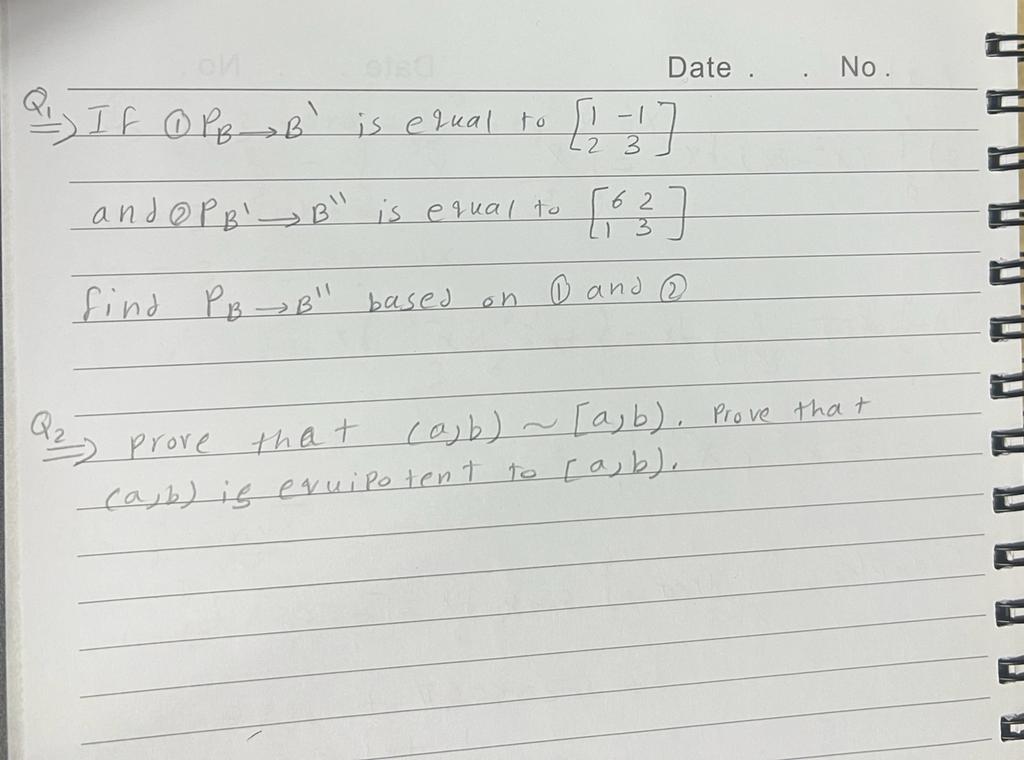 Date . . No .
Q1 => If ① P_B→B' is equal to [1 -1; 2 3]
and ② P_B'→B'' is equal to [6 2; 1 3]
find P_B→B'' based on ① and ②
Q2 => prove that (a,b) ~ [a,b). Prove that
(a,b) is equipotent to [a,b).